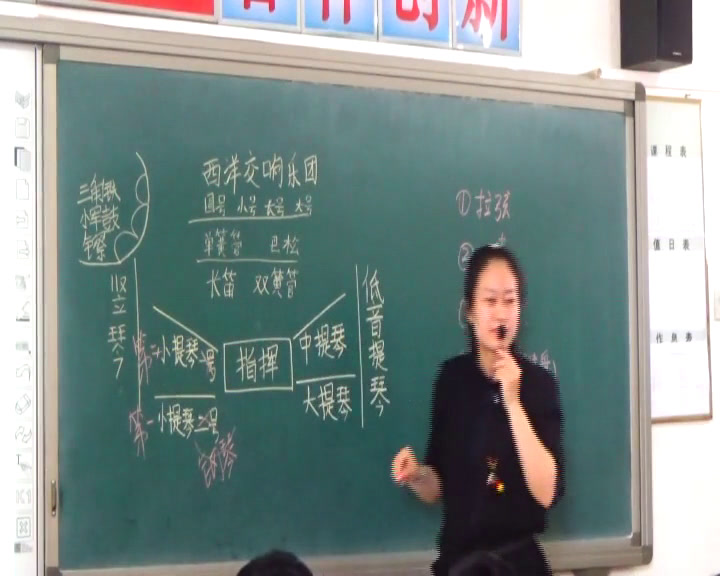 合作创新
西洋交响乐团
圆号 小号 长号 大号
单簧管 巴松
长笛 双簧管
三角铁
小军鼓
竖立琴
低音提琴
指挥
第一小提琴
中提琴
大提琴
小提琴二号
①拉弦
②
课程表
值日表
作息表